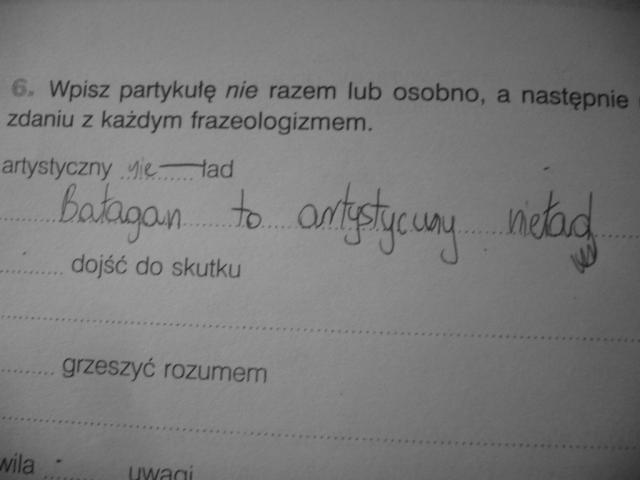 6. Wpisz partykułę nie razem lub osobno, a następnie
zdaniu z każdym frazeologizmem.
artystyczny nie ład
Bałagan to artystyczny nieład
dojść do skutku
grzeszyć rozumem
wila uwagi